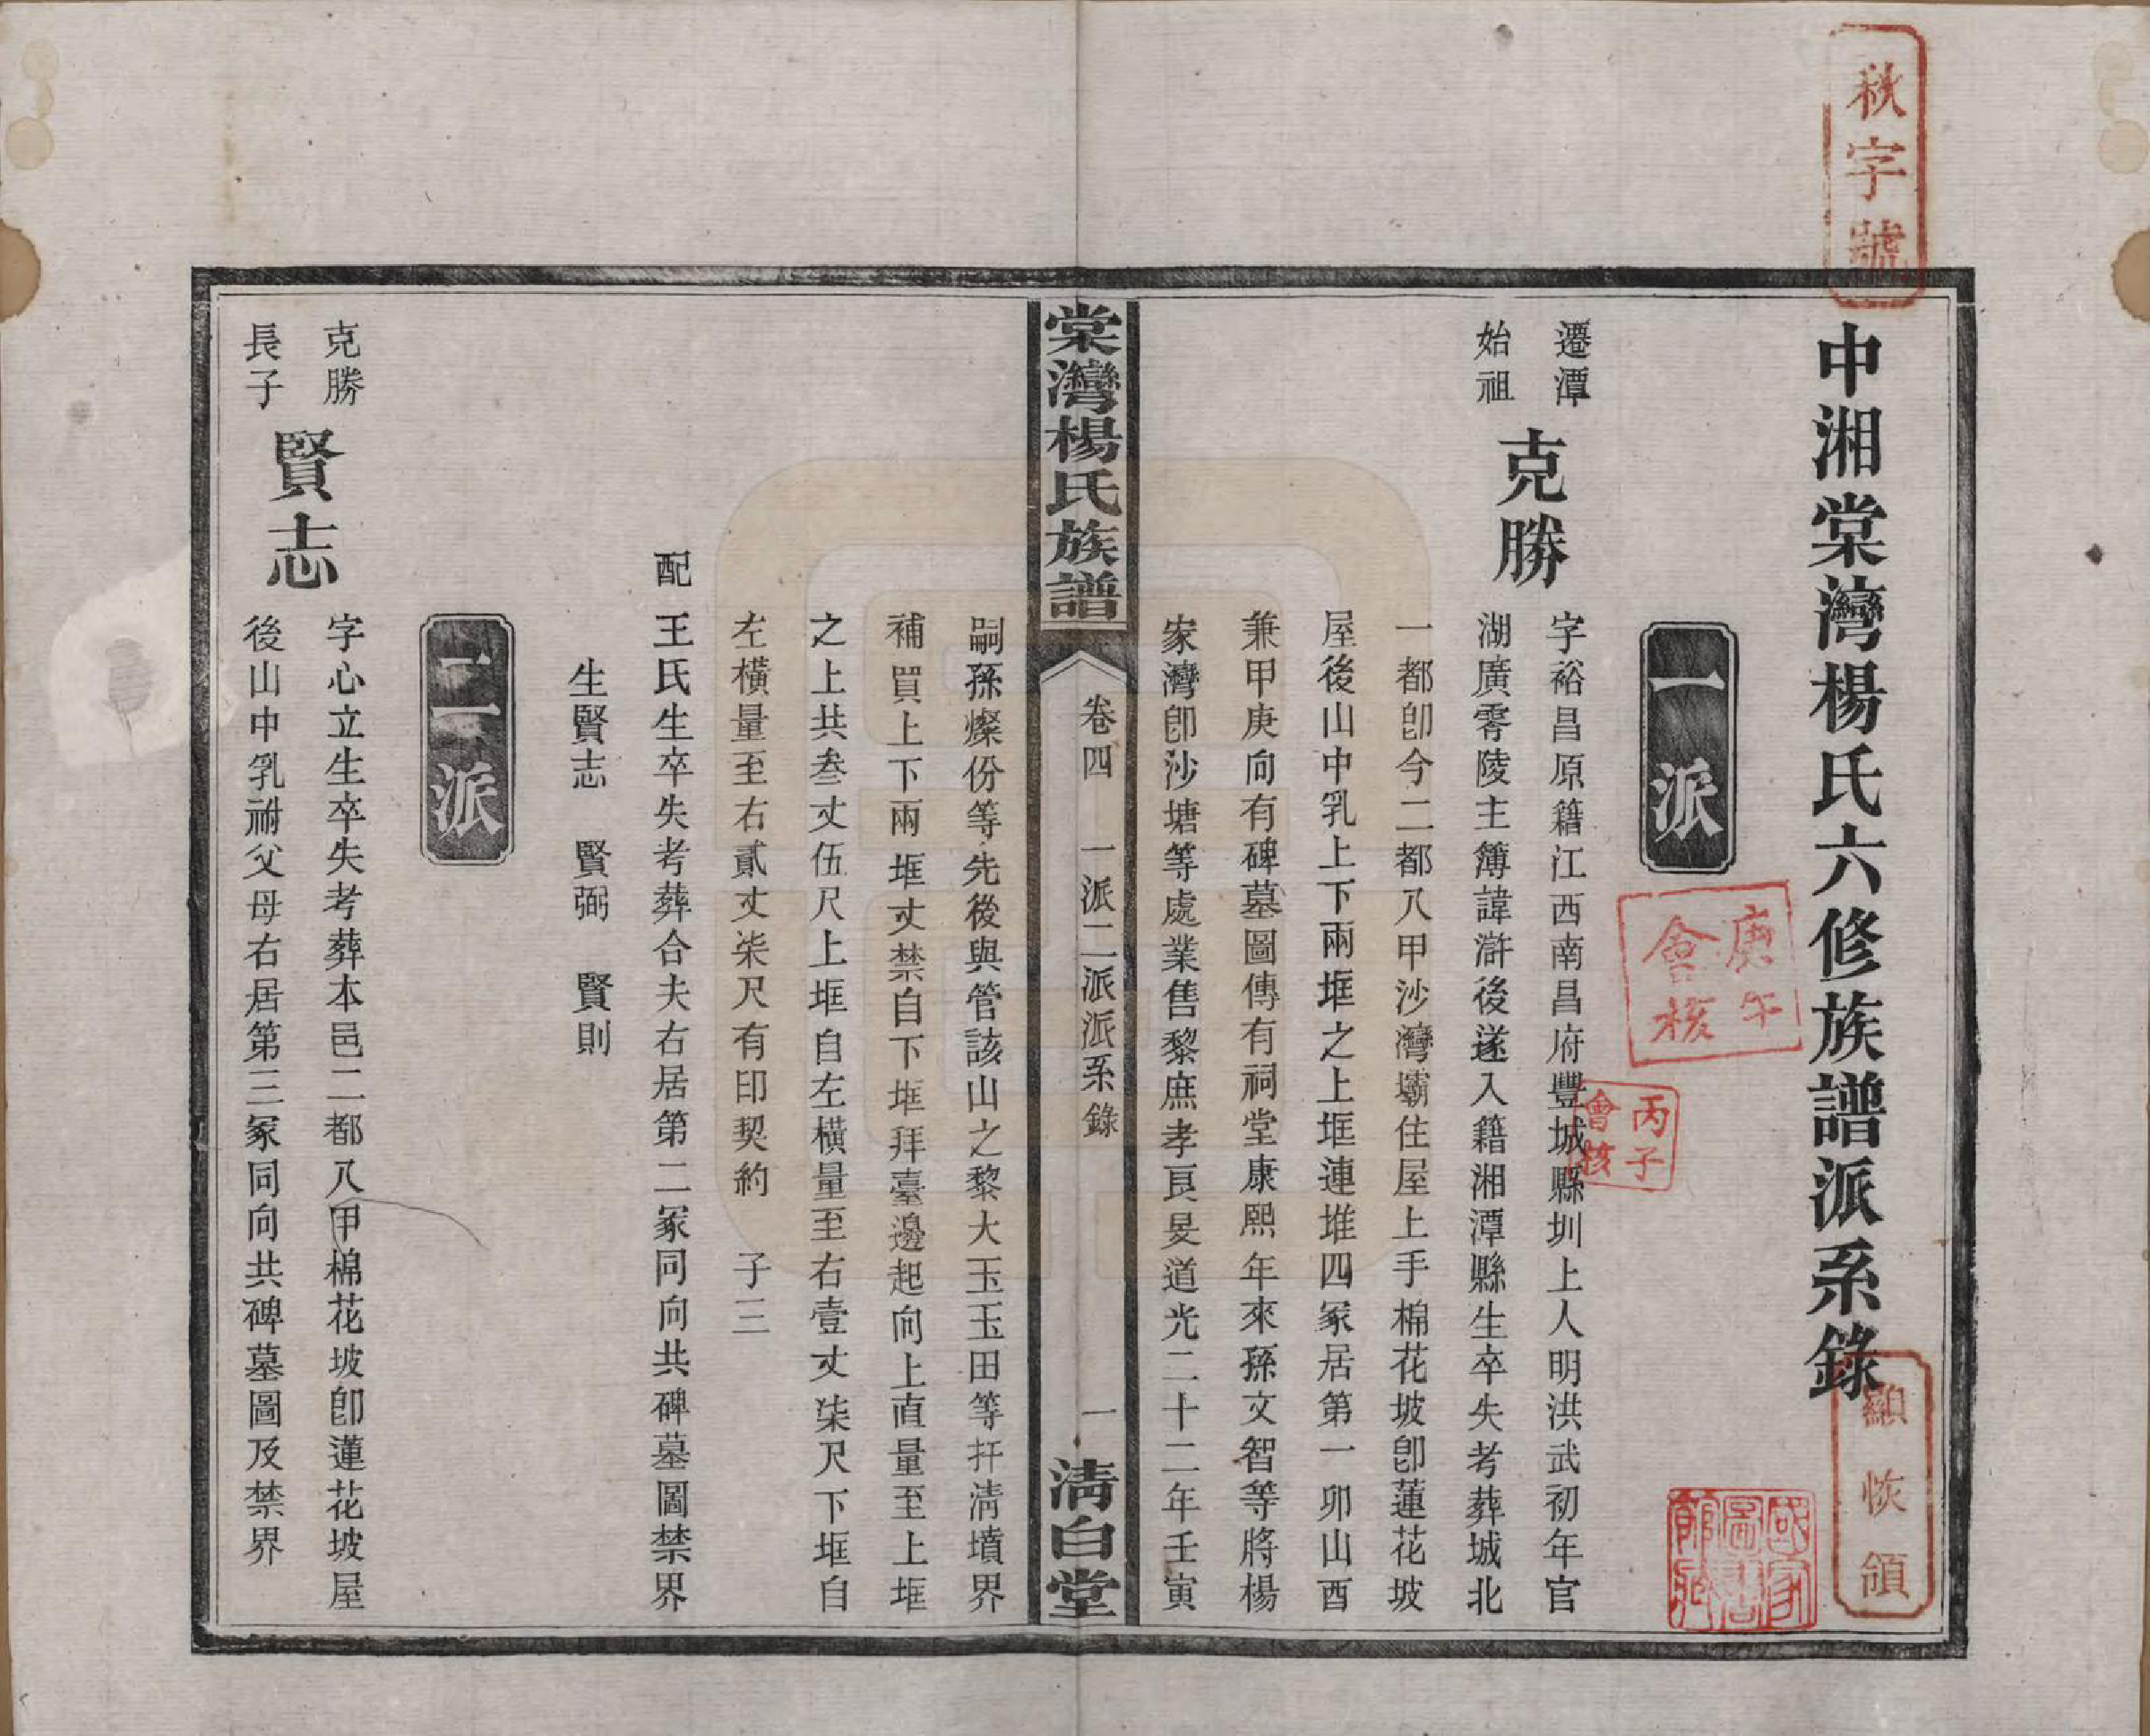 秋字號
中湘棠灣楊氏六修族譜派系錄
顯恢領
國家圖書館藏
庚午會核
丙子會核
一派
遷潭
始祖
克勝
字裕昌原籍江西南昌府豐城縣圳上人明洪武初年官
湖廣零陵主簿諱滸後遂入籍湘潭縣生卒失考葬城北
一都卽今二都八甲沙灣壩住屋上手棉花坡卽蓮花坡
屋後山中乳上下兩堆之上堆連堆四冢居第一卯山酉
兼甲庚向有碑墓圖傳有祠堂康熙年來孫文智等將楊
家灣卽沙塘等處業售黎庶孝艮旻道光二十二年壬寅
棠灣楊氏族譜
卷四 一派二派派系錄
一
淸白堂
嗣孫燦份等先後與管該山之黎大玉玉田等扦淸墳界
補買上下兩堆丈禁自下堆拜臺邊起向上直量至上堆
之上共叁丈伍尺上堆自左橫量至右壹丈柒尺下堆自
左橫量至右貳丈柒尺有印契約 子三
配王氏生卒失考葬合夫右居第二冢同向共碑墓圖禁界
生賢志 賢弼 賢則
二派
克勝
長子
賢志
字心立生卒失考葬本邑二都八甲棉花坡卽蓮花坡屋
後山中乳祔父母右居第三冢同向共碑墓圖及禁界